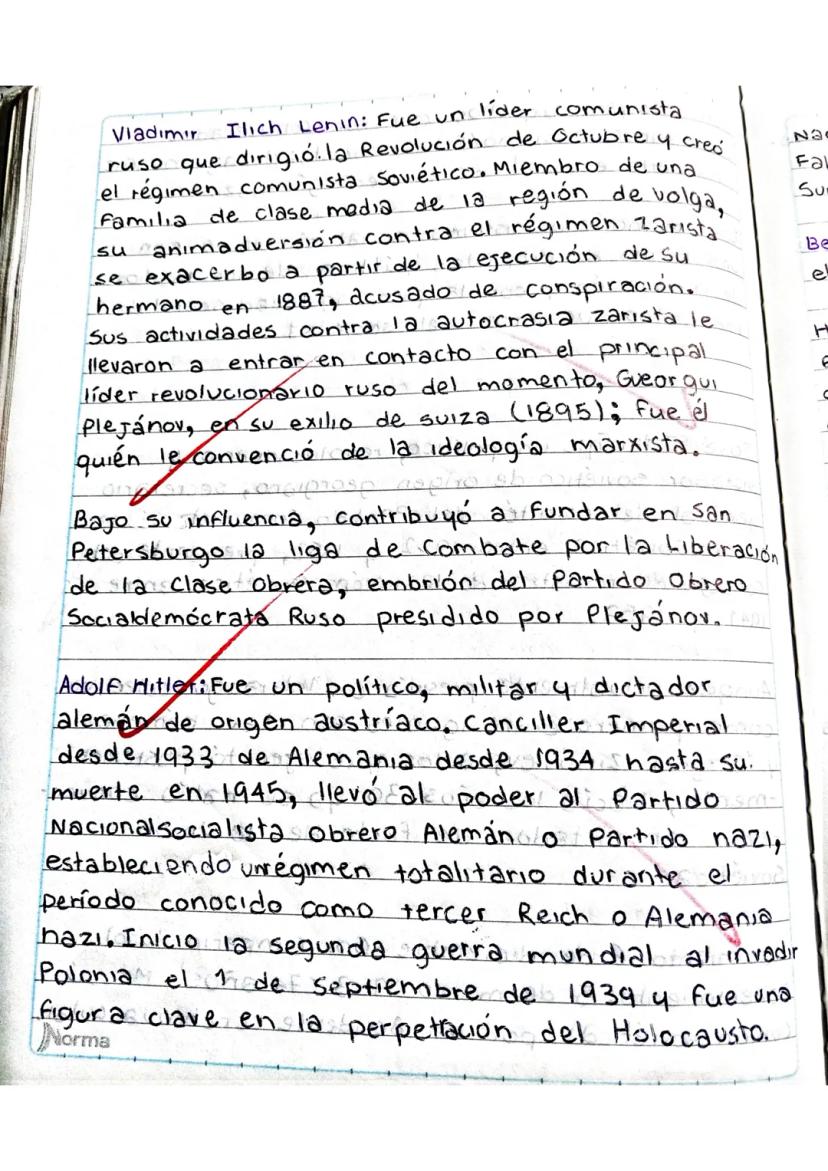 Vladimir Ilich Lenin: Fue un líder comunista
ruso que dirigió la Revolución de Octubre y creó
el régimen comunista Soviético. Miembro de una
familia de clase media de la región de volga,
su animadversión contra el régimen zarista
se exacerbo a partir de la ejecución de su
hermano en 1887, acusado de conspiración.
Sus actividades contra la autocrasia zarista le
llevaron a entrar en contacto con el principal
líder revolucionario ruso del momento, Gueorgui
Plejánov, en su exilio de suiza (1895); fue él
quién le convenció de la ideología marxista.
Bajo su influencia, contribuyó a fundar en San
Petersburgo la liga de Combate por la Liberación
de la Clase Obrera, embrión del Partido Obrero
Socialdemócrata Ruso presidido por Plejánov.
Adolf Hitler: Fue un político, militar y dictador
alemán de origen austríaco. Canciller Imperial
desde 1933 de Alemania desde 1934 hasta su
muerte en 1945, llevó al poder al Partido
Nacionalsocialista Obrero Alemán o Partido nazi,
estableciendo un régimen totalitario durante el
período conocido como tercer Reich o Alemania
nazi. Inicio la segunda guerra mundial al invadir
Polonia el 1 de septiembre de 1939 y fue una
figura clave en la perpetración del Holocausto.
Norma